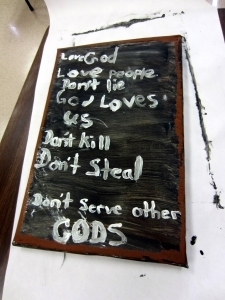 Love God
Love people
Don't lie
God Loves
us
Don't kill
Don't Steal
Don't Serve other
GODS